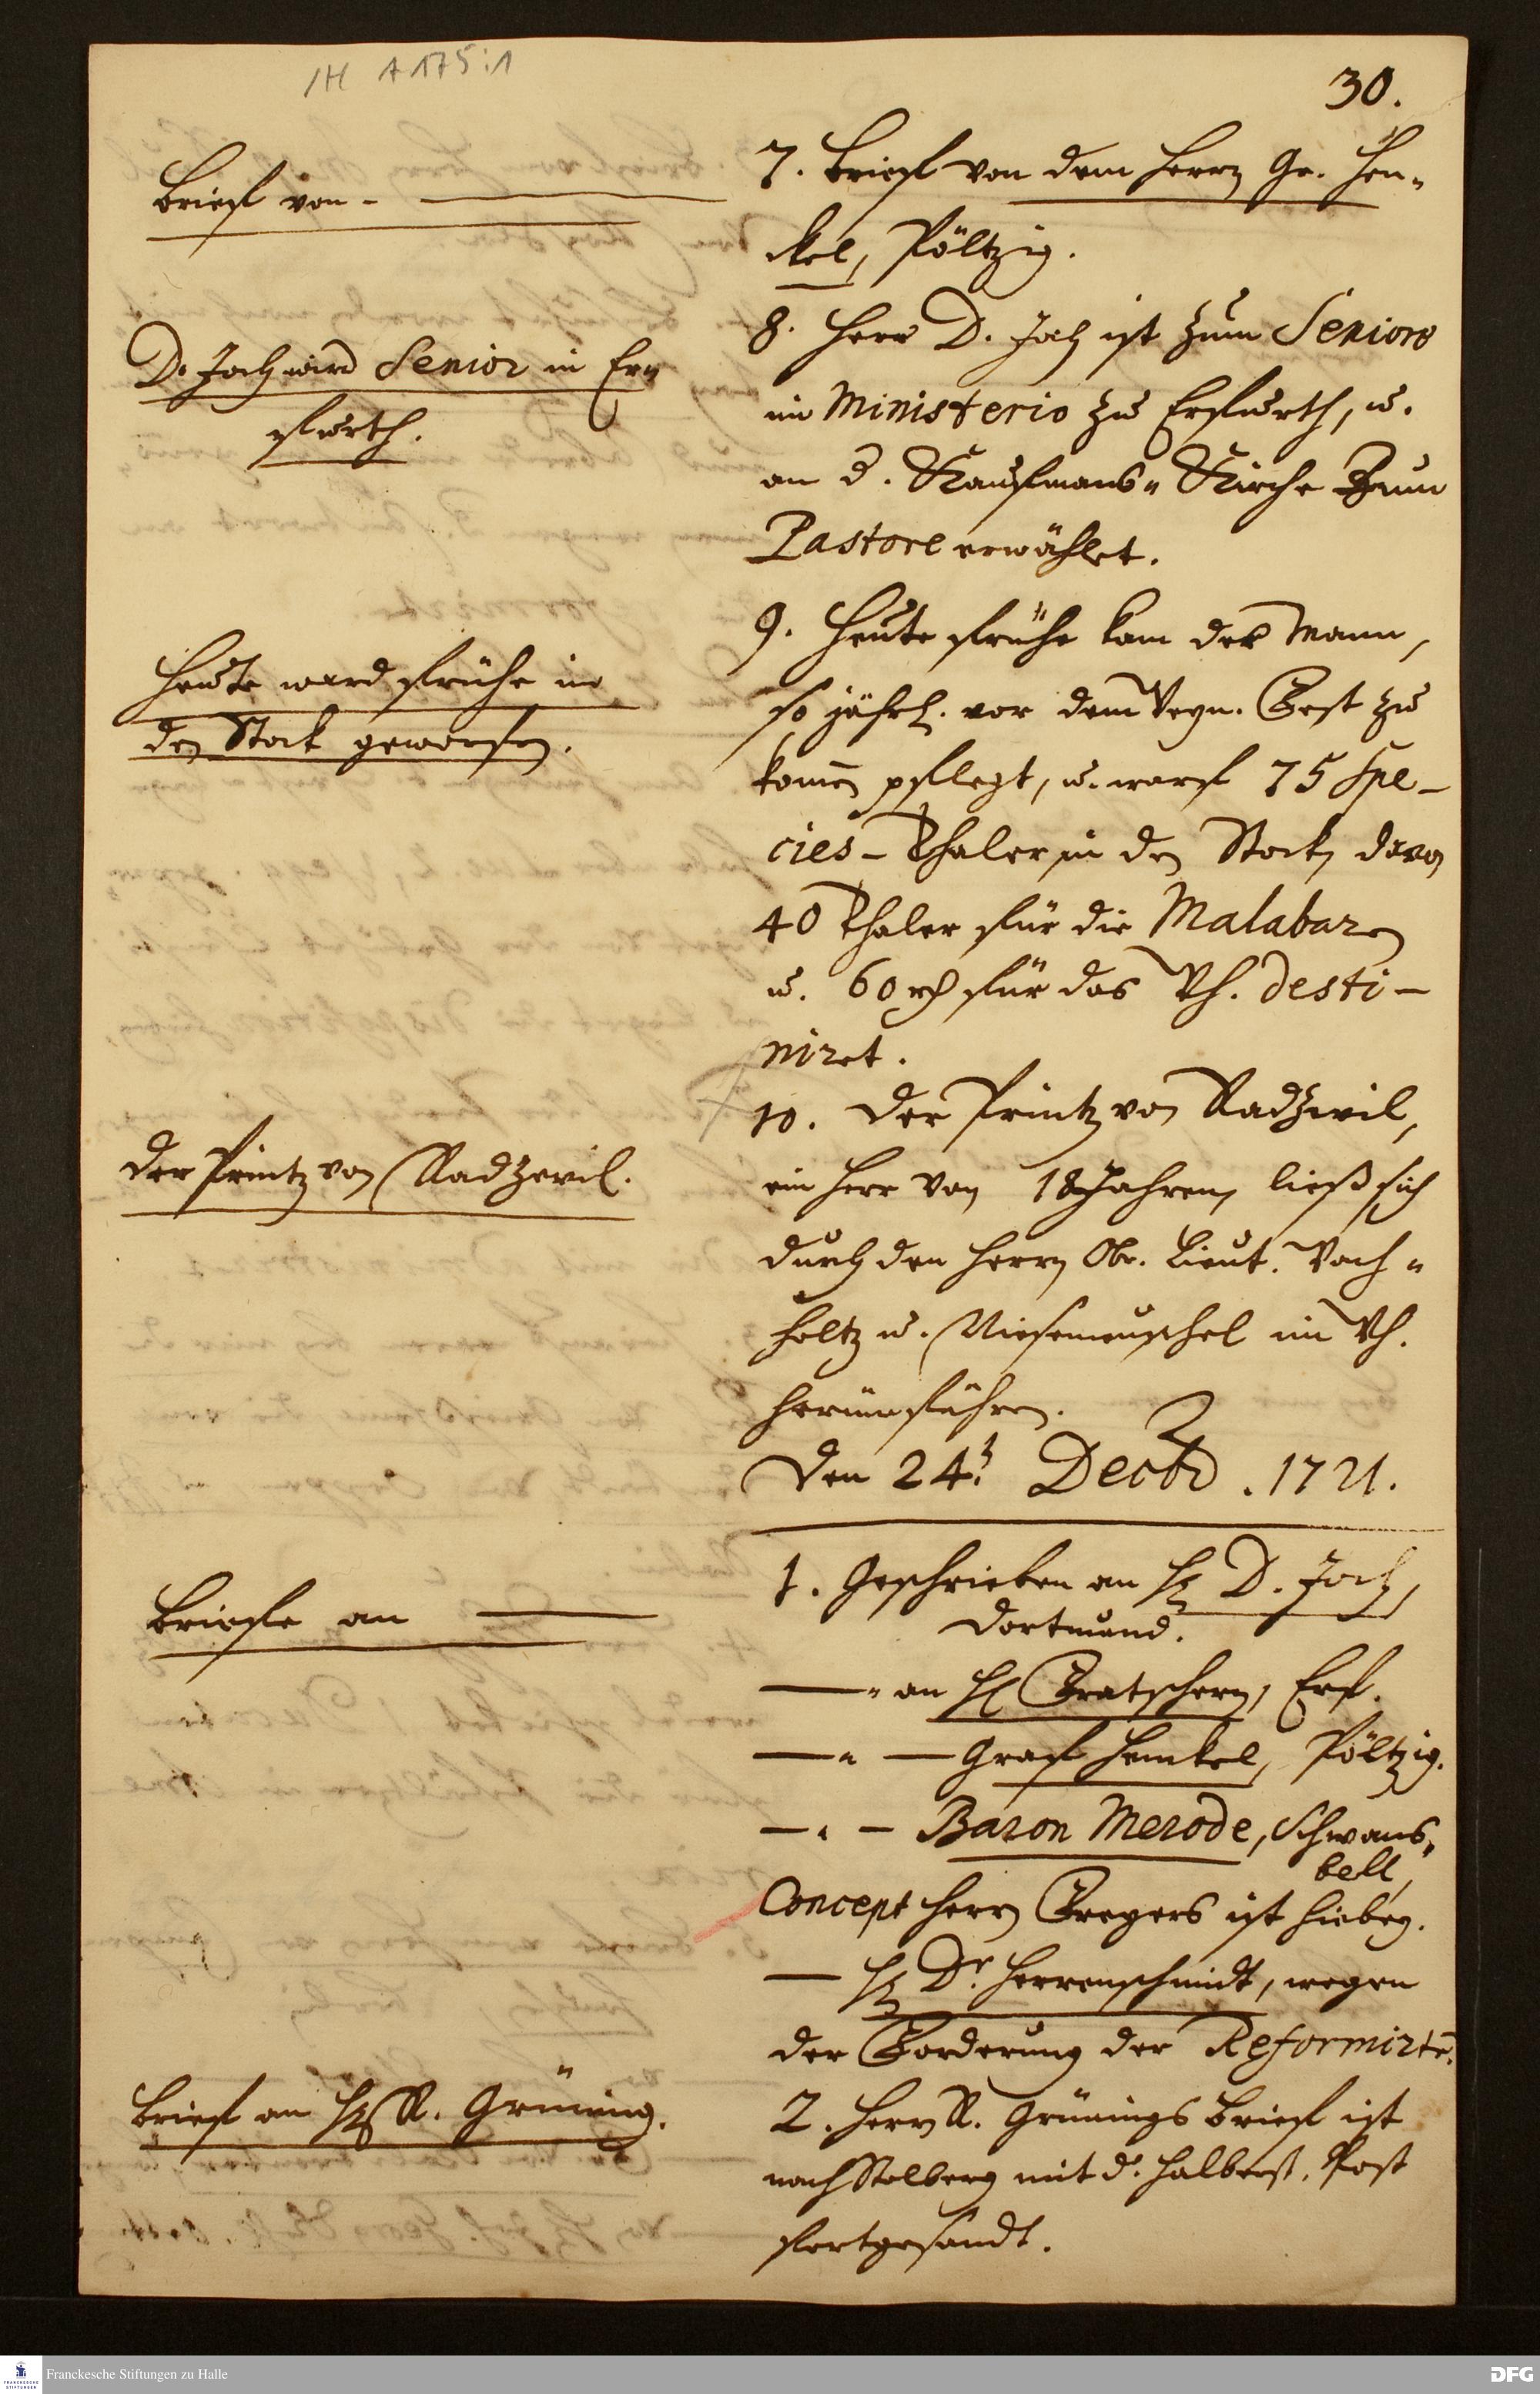 1H A 175:1
30.
Brieff von - ———
7. Brieff von dem Herrn Gr. Hen-
ckel, Pöltzig.
D. Joch wird Senior in Er-
ffurth.
8. Herr D. Joch ist zum Seniore
im Ministerio zu Erffurth, u.
an d. Kauffmans- Kirche zum
Pastore erwählet.
Heute ward frühe in
den Stock geworffen.
9. Heute frühe kam der Mann,
so jährl. vor dem Fest zu
komen pflegt, u. warff 75 Spe-
cies-Thaler in den Stock, davon
40 Thaler für die Malabaren
u. 60 rh für das Wh. desti-
niret.
Der Printz von Radzevil.
10. Der Printz von Radzivil,
ein Herr von 18 Jahren, ließ sich
durch den Herrn Ob. Lieut. Wach-
holtz u. Niesemeuschel im Wh.
herümführen.
Den 24. Decbr. 1721.
Brieffe an ———
1. Geschrieben an H. D. Joch,
Dortmund.
— " an H. Gratschern, Erf.
— " — Graff Henckel, Pöltzig.
— " — Baron Merode, Schwans-
bell,
Concept Herrn Gregers ist hiebey.
— H. Dr. Herrenschmidt, wegen
der Forderung der Reformirten.
Brieff an H. R. Grüning.
2. Herrn R. Grünings Brieff ist
nach Stolberg mit d. Halberst. Post
fortgesandt.
Franckesche Stiftungen zu Halle
FRANCKESCHE
STIFTUNGEN
DFG